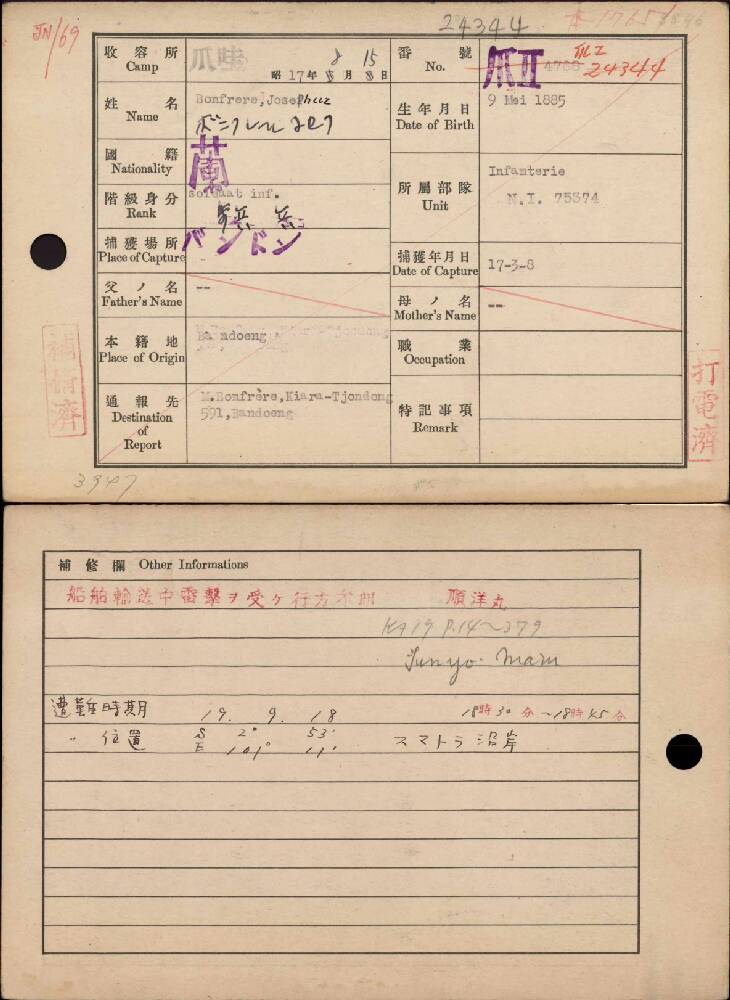 JN/69
24344
收容所 Camp
爪哇
昭17年8月15日
番號 No.
爪II
4788
爪II 24344
姓名 Name
Bonfrere, Josephuz
生年月日 Date of Birth
9 Mei 1885
國籍 Nationality
蘭
階級身分 Rank
soldaat inf.
所屬部隊 Unit
Infanterie
N.I. 75374
捕獲場所 Place of Capture
バンドン
捕獲年月日 Date of Capture
17-3-8
父ノ名 Father's Name
--
母ノ名 Mother's Name
--
本籍地 Place of Origin
Bandoeng
職業 Occupation
通報先 Destination of Report
M.Bonfrère,Kiara-Tjondong
591,Bandoeng
特記事項 Remark
補情濟
打電濟
3947
補修欄 Other Informations
船舶輸送中雷擊ヲ受ケ行方不明 順洋丸
KA19 P.14~379
Junyo Maru
遭難時期 19. 9. 18 18時30分~18時45分
〃 位置 S 2° 53'
E 101° 11' スマトラ沿岸